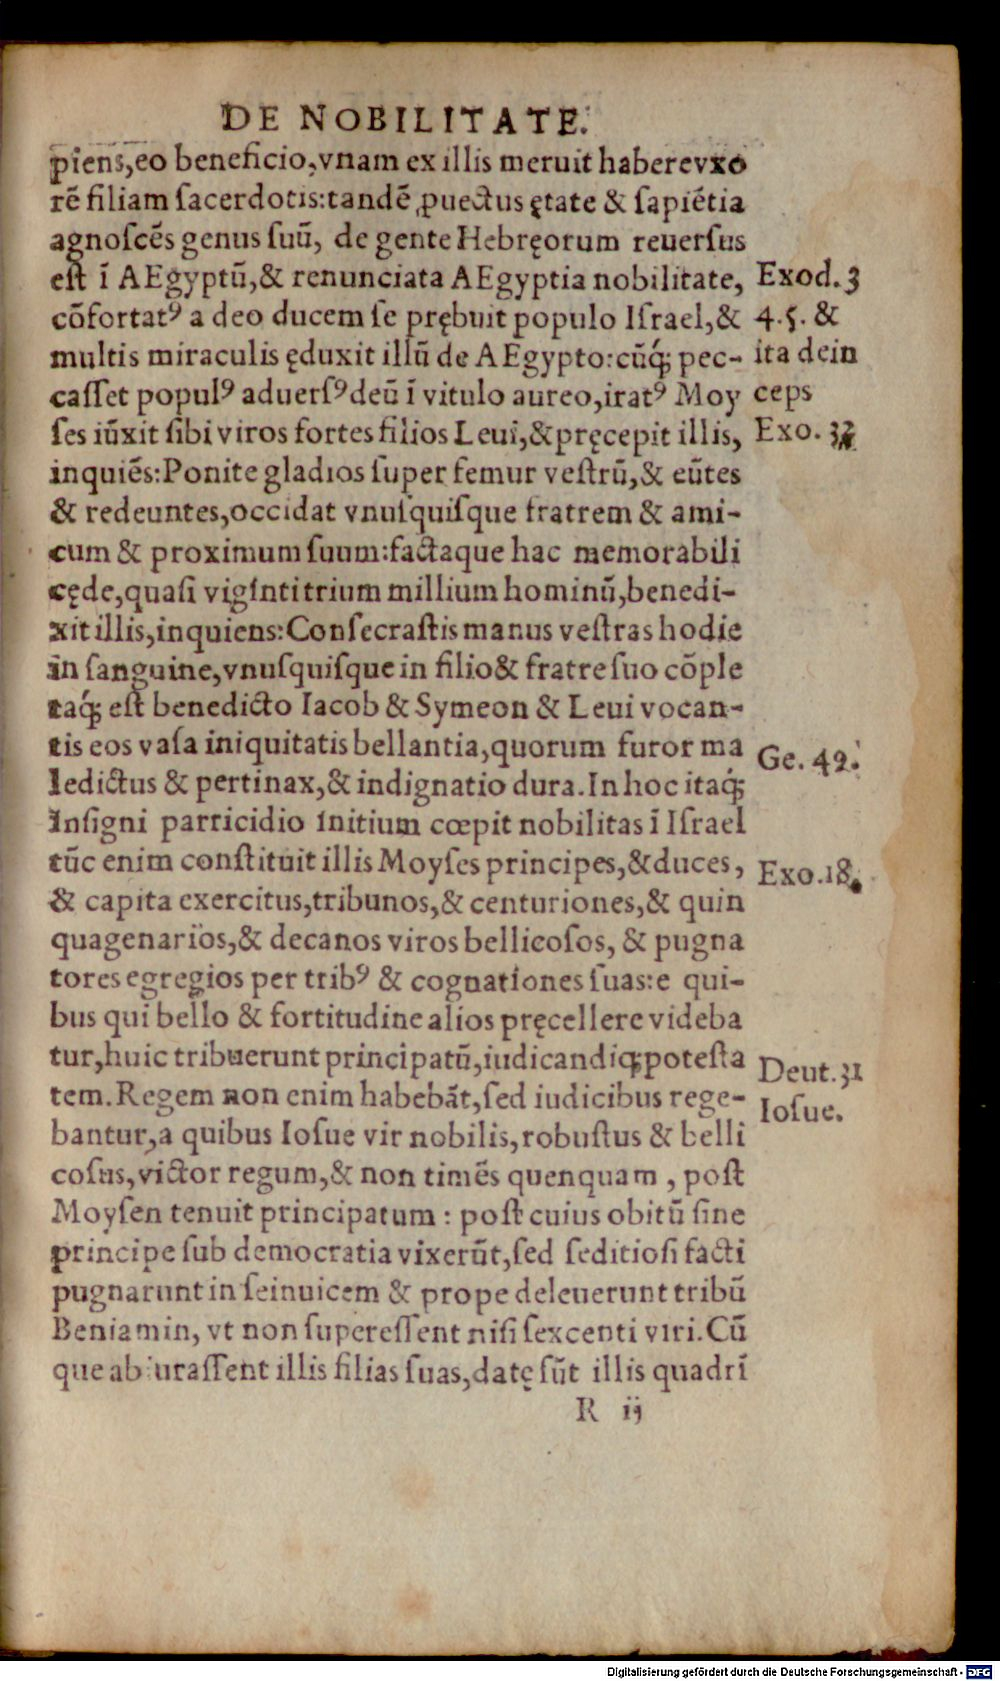 DE NOBILITATE.
piens, eo beneficio, vnam ex illis meruit habere vxo
rē filiam sacerdotis: tandē ꝓuectus ętate & sapiētia
agnoscēs genus suū, de gente Hebręorum reuersus
est ī AEgyptū, & renunciata AEgyptia nobilitate,
cōfortatꝰ a deo ducem se prębuit populo Israel, &
multis miraculis ęduxit illū de AEgypto: cūq; pec-
casset populꝰ aduersꝰ deū ī vitulo aureo, iratꝰ Moy
ses iūxit sibi viros fortes filios Leui, & pręcepit illis,
inquiēs: Ponite gladios super femur vestrū, & eūtes
& redeuntes, occidat vnusquisque fratrem & ami-
cum & proximum suum: factaque hac memorabili
cęde, quasi viginti trium millium hominū, benedi-
xit illis, inquiens: Consecrastis manus vestras hodie
in sanguine, vnusquisque in filio & fratre suo cōple
taq; est benedicto Iacob & Symeon & Leui vocan-
tis eos vasa iniquitatis bellantia, quorum furor ma
ledictus & pertinax, & indignatio dura. In hoc itaq;
Insigni parricidio initium cœpit nobilitas ī Israel
tūc enim constituit illis Moyses principes, & duces,
& capita exercitus, tribunos, & centuriones, & quin
quagenarios, & decanos viros bellicosos, & pugna
tores egregios per tribꝰ & cognationes suas: e qui-
bus qui bello & fortitudine alios pręcellere videba
tur, huic tribuerunt principatū, iudicandiq; potesta
tem. Regem non enim habebāt, sed iudicibus rege-
bantur, a quibus Iosue vir nobilis, robustus & belli
cosus, victor regum, & non timēs quenquam, post
Moysen tenuit principatum: post cuius obitū sine
principe sub democratia vixerūt, sed seditiosi facti
pugnarunt in seinuicem & prope deleuerunt tribū
Beniamin, vt non superessent nisi sexcenti viri. Cū
que abiurassent illis filias suas, datę sūt illis quadrī
R ij
Exod. 3
4. 5. &
ita dein
ceps
Exo. 32
Ge. 49.
Exo. 18.
Deut. 31
Iosue.
Digitalisierung gefördert durch die Deutsche Forschungsgemeinschaft - DFG